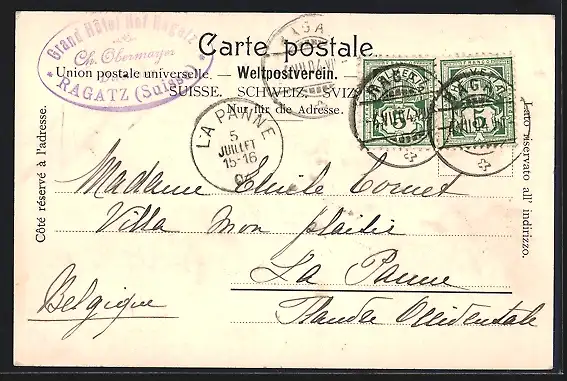 Grand Hôtel Hof Ragatz
Ch. Obermayer
* RAGATZ (Suisse) *
Carte postale.
Union postale universelle. — Weltpostverein. —
SUISSE. SCHWEIZ. SVIZ
Nur für die Adresse.
Côté réservé à l'adresse.
Lato riservato all' indirizzo.
RAGAZ
RAGAZ
5
5
LA PANNE
5
JUILLET
15-16
04
Madame Emile Cornet
Villa Mon plaisir
La Panne
Belgique
Flandre Occidentale